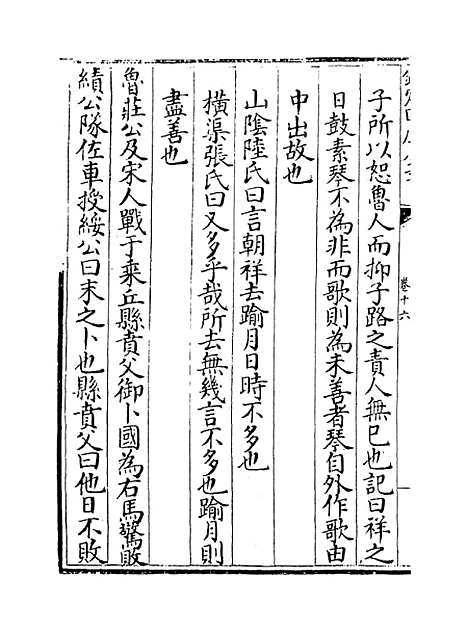 子所以恕魯人而抑子路之責人無已也記曰祥之
日鼓素琴不為非而歌則為未善者琴自外作歌由
中出故也
山陰陸氏曰言朝祥去踰月日時不多也
橫渠張氏曰又多乎哉所去無幾言不多也踰月則
盡善也
魯莊公及宋人戰于乘丘縣賁父御卜國為右馬驚敗
績公隊佐車授綏公曰末之卜也縣賁父曰他日不敗
卷十六